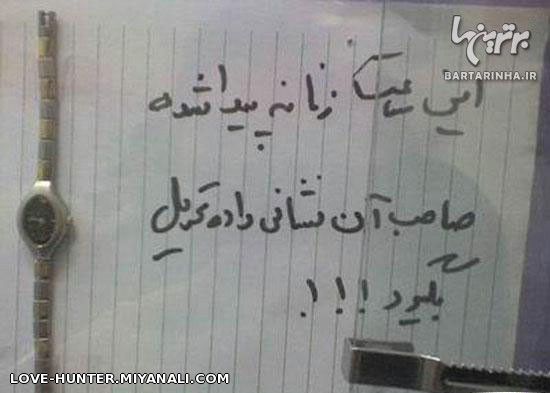 برترینها
BARTARINHA.IR
این ساعت زنانه پیدا شده
صاحب آن نشانی داده تحویل
بگیرد !!!
LOVE-HUNTER.MIYANALI.COM